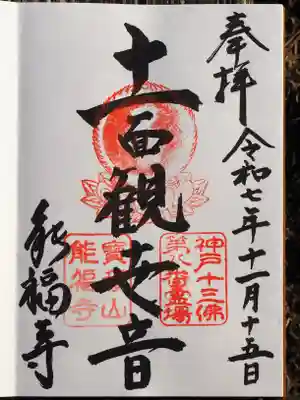 奉拝
令和七年十一月十五日
十一面観世音
神戸十三佛
第八番霊場
能福寺
寶積山
能福寺